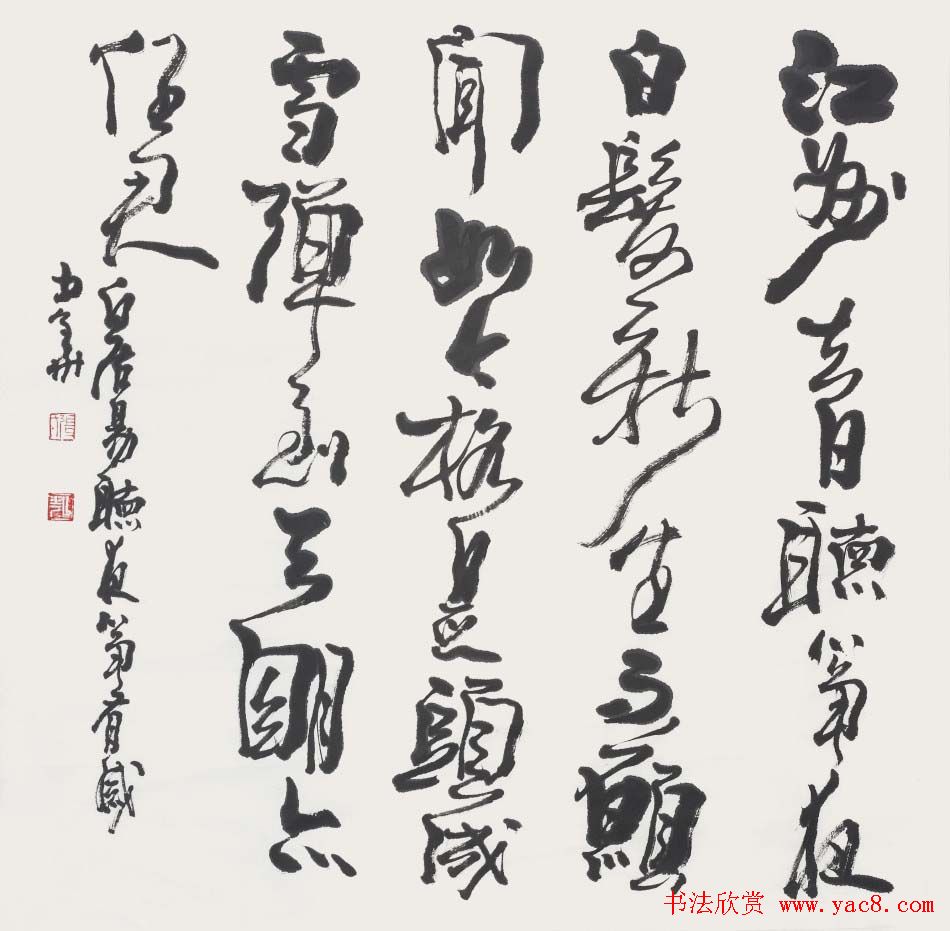 江州去日聽筝夜
白髮新生不願
聞如今格是頭成
雪彈到天明亦
任君
白居易聽夜筝有感
书法欣赏 www.yac8.com